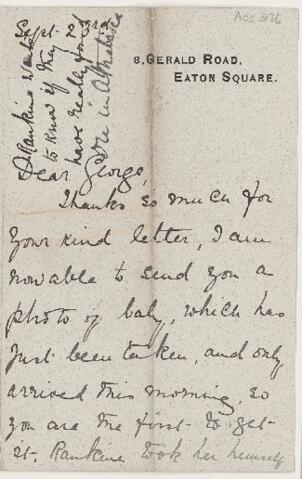 Acc. 526
Sept. 23rd
8, GERALD ROAD,
EATON SQUARE.
Rankine wants
to know if they
have really found
ore in Athabisca
Dear George,
Thanks so much for
your kind letter, I am
now able to send you a
photo of baby, which has
just been taken, and only
arrived this morning, so
you are the first to get
it. Rankine took her himself